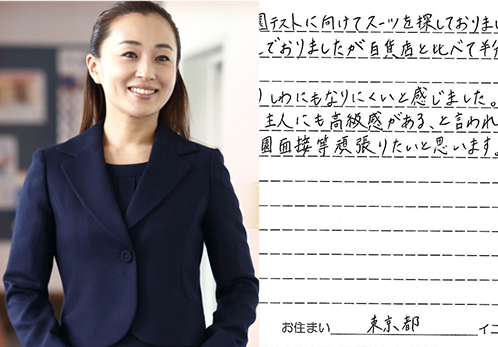 園テストに向けてスーツを探しておりまし
しでおりましたが百貨店と比べて半
りしわにもなりにくいと感じました。
主人にも高級感がある、と言われ
園面接等頑張りたいと思います。
お住まい 東京都 イニ